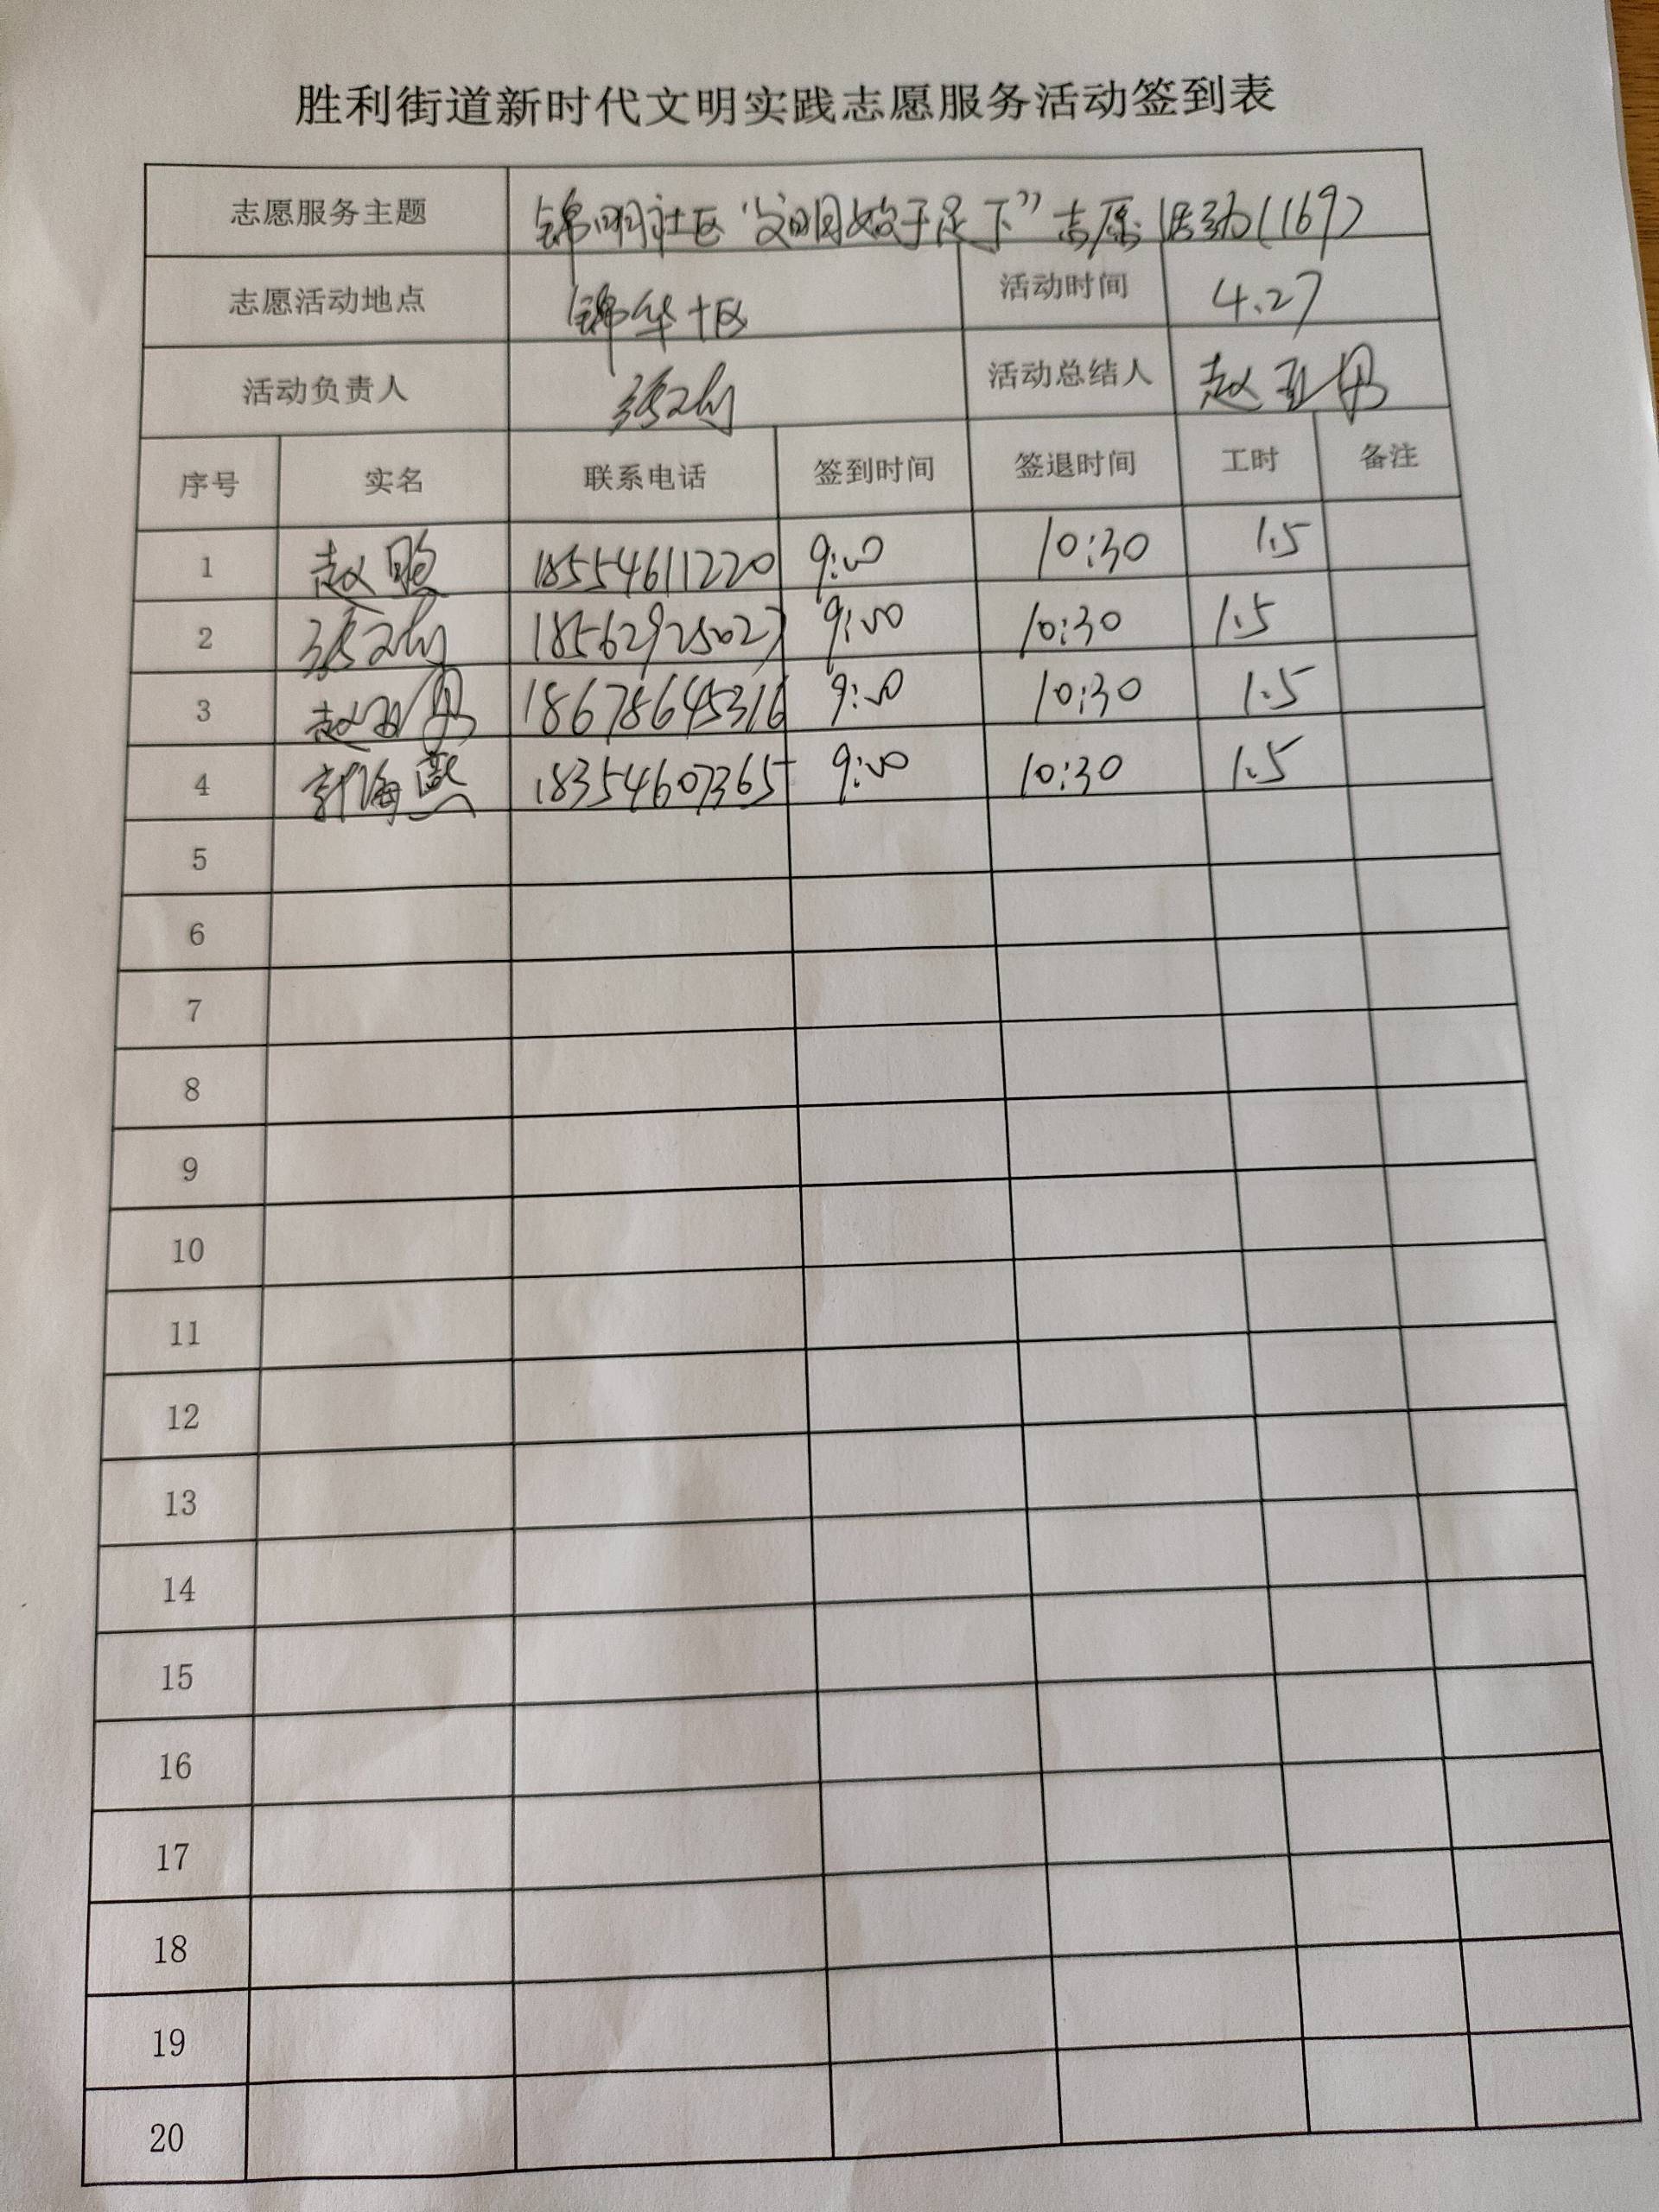 胜利街道新时代文明实践志愿服务活动签到表
志愿服务主题 锦明社区“文明始于足下”志愿活动(169)
志愿活动地点 锦华十区 活动时间 4.27
活动负责人 活动总结人 赵亚男
序号 实名 联系电话 签到时间 签退时间 工时 备注
1 赵 18554611220 9:00 10:30 1.5
2 18562925027 9:00 10:30 1.5
3 赵亚男 18678645316 9:00 10:30 1.5
4 郭海燕 18354607365 9:00 10:30 1.5
5
6
7
8
9
10
11
12
13
14
15
16
17
18
19
20